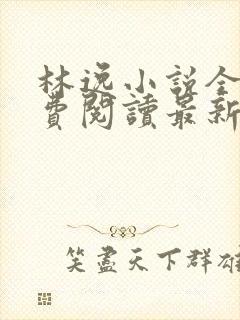 林逸小说全
費閱讀最新
笑盡天下群雄